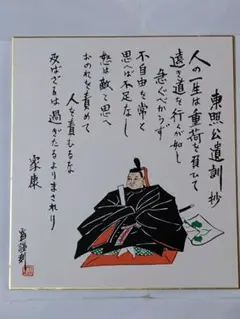 東照公遺訓 抄
人の一生は重荷を負ひて
遠き道を行くが如し
急ぐべからず
不自由を常と
思へば不足なし
怒は敵と思へ
おのれを責めて
人を責むるな
及ばざるは過ぎたるよりまされり
家康